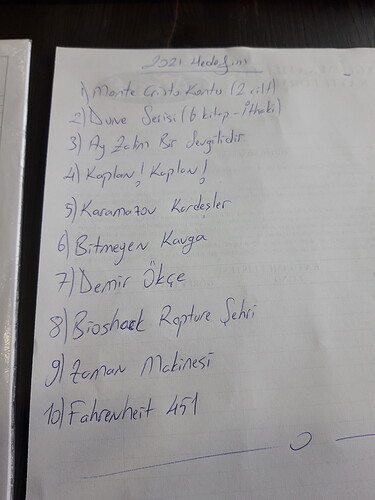 2021 Hedefim
1) Monte Cristo Kontu (2 cilt)
2) Dune Serisi (6 kitap - İthaki)
3) Ay Zalim Bir Sevgilidir
4) Kaplan! Kaplan!
5) Karamazov Kardeşler
6) Bitmeyen Kavga
7) Demir Ökçe
8) Bioshock Rapture Şehri
9) Zaman Makinesi
10) Fahrenheit 451